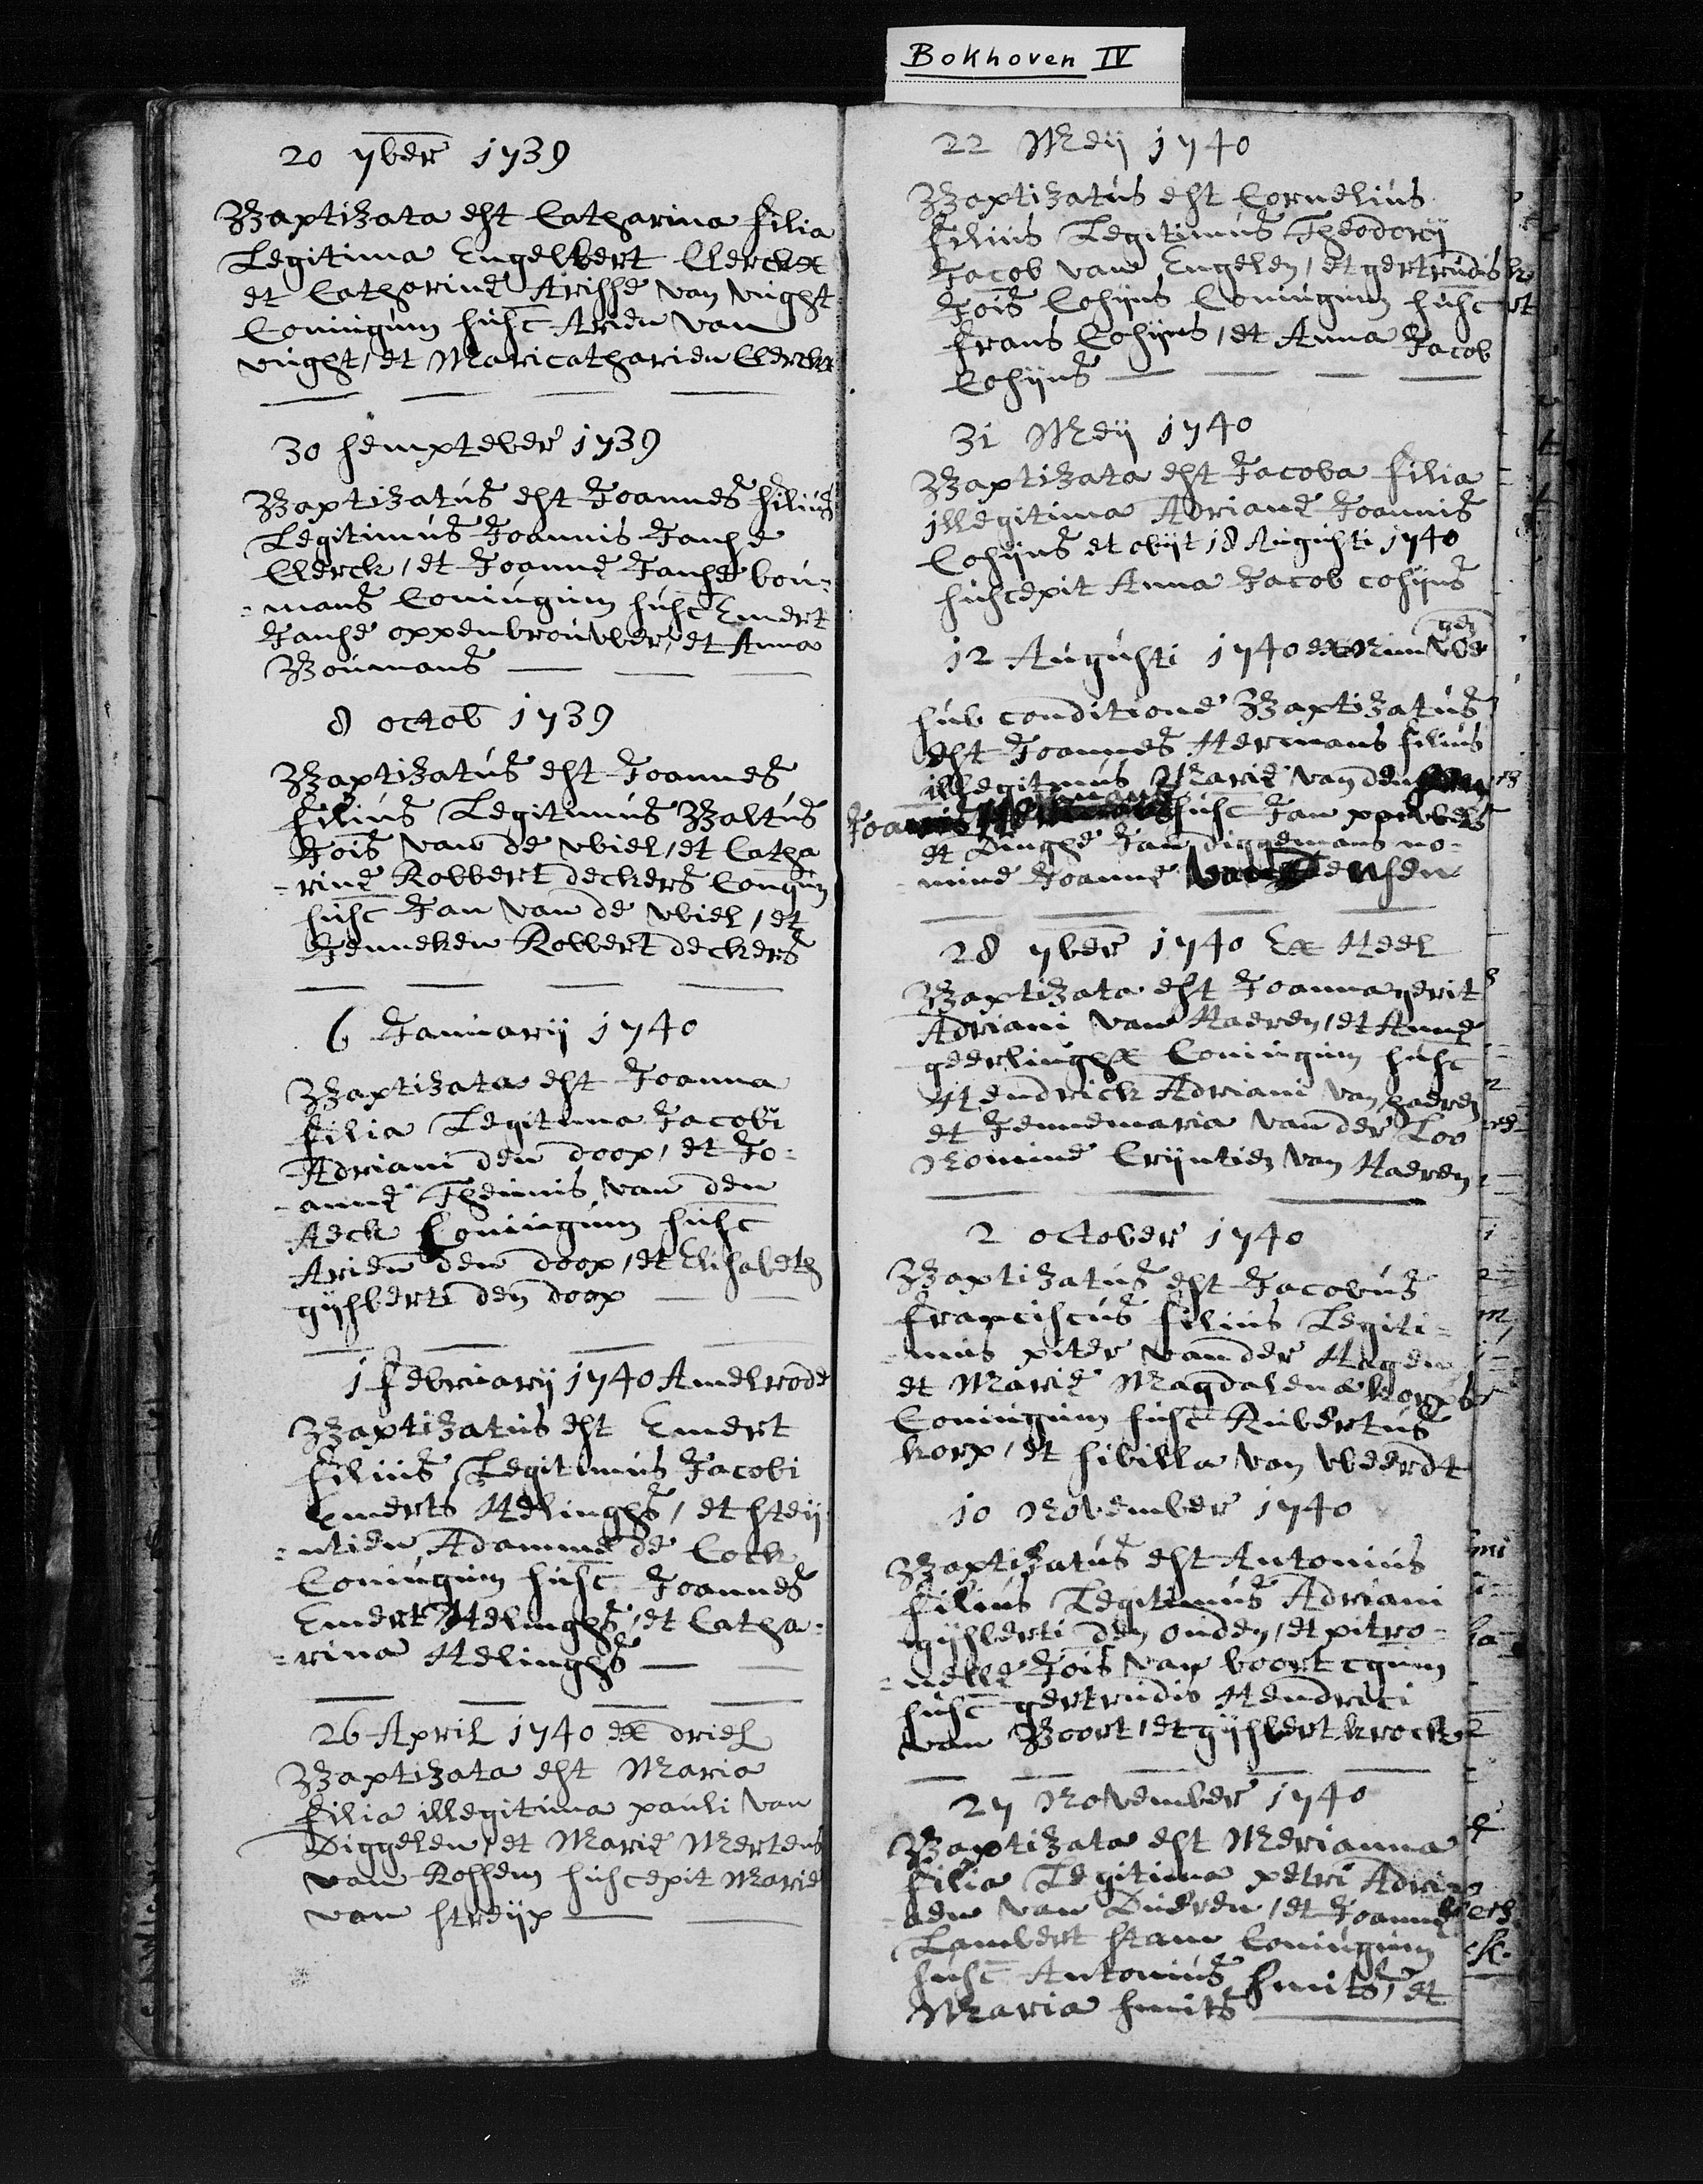 Bokhoven IV
20 7ber 1739
Baptizata est Catharina filia
Legitima Engelbert Clerckx
et Catharinę Arisse van vught
Coniugum susc Arien van
vught, et Maricatharien Clerckx
30 sempteber 1739
Baptizatus est Joannes filius
Legitimus Joannis Janse
Clerck, et Joannę Janse bou-
-mans Coniugum susc Emert
Janse oppenbrouwer, et Anna
Boumans
8 octob 1739
Baptizatus est Joannes
filius Legitimus Baltus
Jois van de wiel, et Catha
-rinę Robbert deckers Congum
susc Jan van de wiel, et
Jenneken Robbert deckers
6 Januarij 1740
Baptizata est Joanna
filia Legitima Jacobi
Adriani den doop, et Jo-
-annę Theunis van den
Heck Coniugum susc
Arien den doop, et Elisabeth
gijsberti den doop
1 februarij 1740 Amelrode
Baptizatus est Emert
filius Legitimus Jacobi
Emerts Helinghs, et steij
-ntien Adammę de Cock
Coniugum susc Joannes
Emert Helinghs, et Catha-
-rina Helinghs
26 April 1740 ex driel
Baptizata est Maria
filia illegitima pauli van
Diggelen, et Marię Mertens
van Rossem suscepit Marie
van streijp
22 Meij 1740
Baptizatus est Cornelius
filius Legitimus Theodorij
Jacob van Engelen, et gertrudis
Jois Cosijns Coniugum susc
frans Cosijns, et Anna Jacob
Cosijns
31 Meij 1740
Baptizata est Jacoba filia
illegitima Adrianę Joannis
Cosijns et obijt 18 Augusti 1740
suscepit Anna Jacob cosijns
12 Augusti 1740 ex
sub conditione Baptizatus
est Joannes Hermans filius
illegitmus Marię van den
Joannis susc Jan
et Dinghe Jan diggemans no-
-mine Joannę
28 7ber 1740 Ex Heel
Baptizata est Joanna gerit
Adriani van Haeren, et Annę
geerlinghx Coniugum susc
Hendrick Adriani van haeren
et Jennemaria van der Loo
Nomine Crijntien van Haeren
2 october 1740
Baptizatus est Jacobus
franciscus filius Legiti-
-mus piter van der Hagen
et Marię Magdalenæ korps
Coniugum susc Rubertus
korp, et sibilla van weerdt
10 November 1740
Baptizatus est Antonius
filius Legitimus Adriani
gijsberti den ouden, et pitro-
-nellę Jois van boort cgum
susc gertrudis Hendrici
van Boort, et gijsbert krock
27 November 1740
Baptizata est Merianna
filia Legitima petri Adri
-aen van Dieren, et Joannę
Lambert stam Coniugum
susc Antonius smits, et
Maria smits